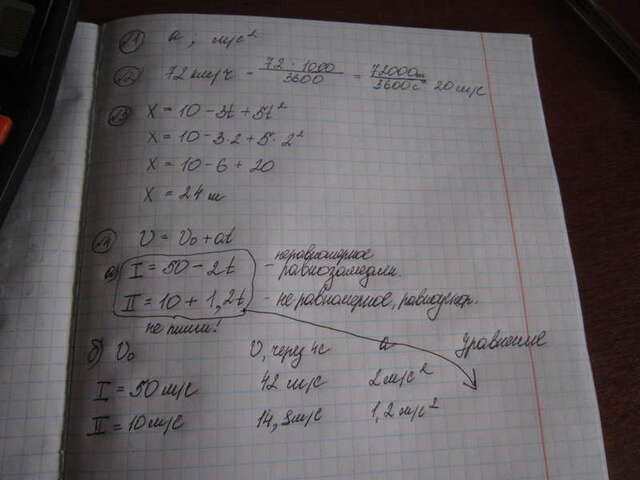 21) a; м/с²
22) 72 км/ч - 72 · 1000 / 3600 = 72000 м / 3600 с 20 м/с
23) X = 10 - 3t + 5t²
X = 10 - 3·2 + 5·2²
X = 10 - 6 + 20
X = 24 м
24) V = V₀ + at
а) I = 50 - 2t - неравномерное равнозамедлен.
II = 10 + 1,2t - неравномерное, равноускор.
не пиши!
б) V₀ V, через 4с a Уравнение
I = 50 м/с 42 м/с 2 м/с²
II = 10 м/с 14,8 м/с 1,2 м/с²